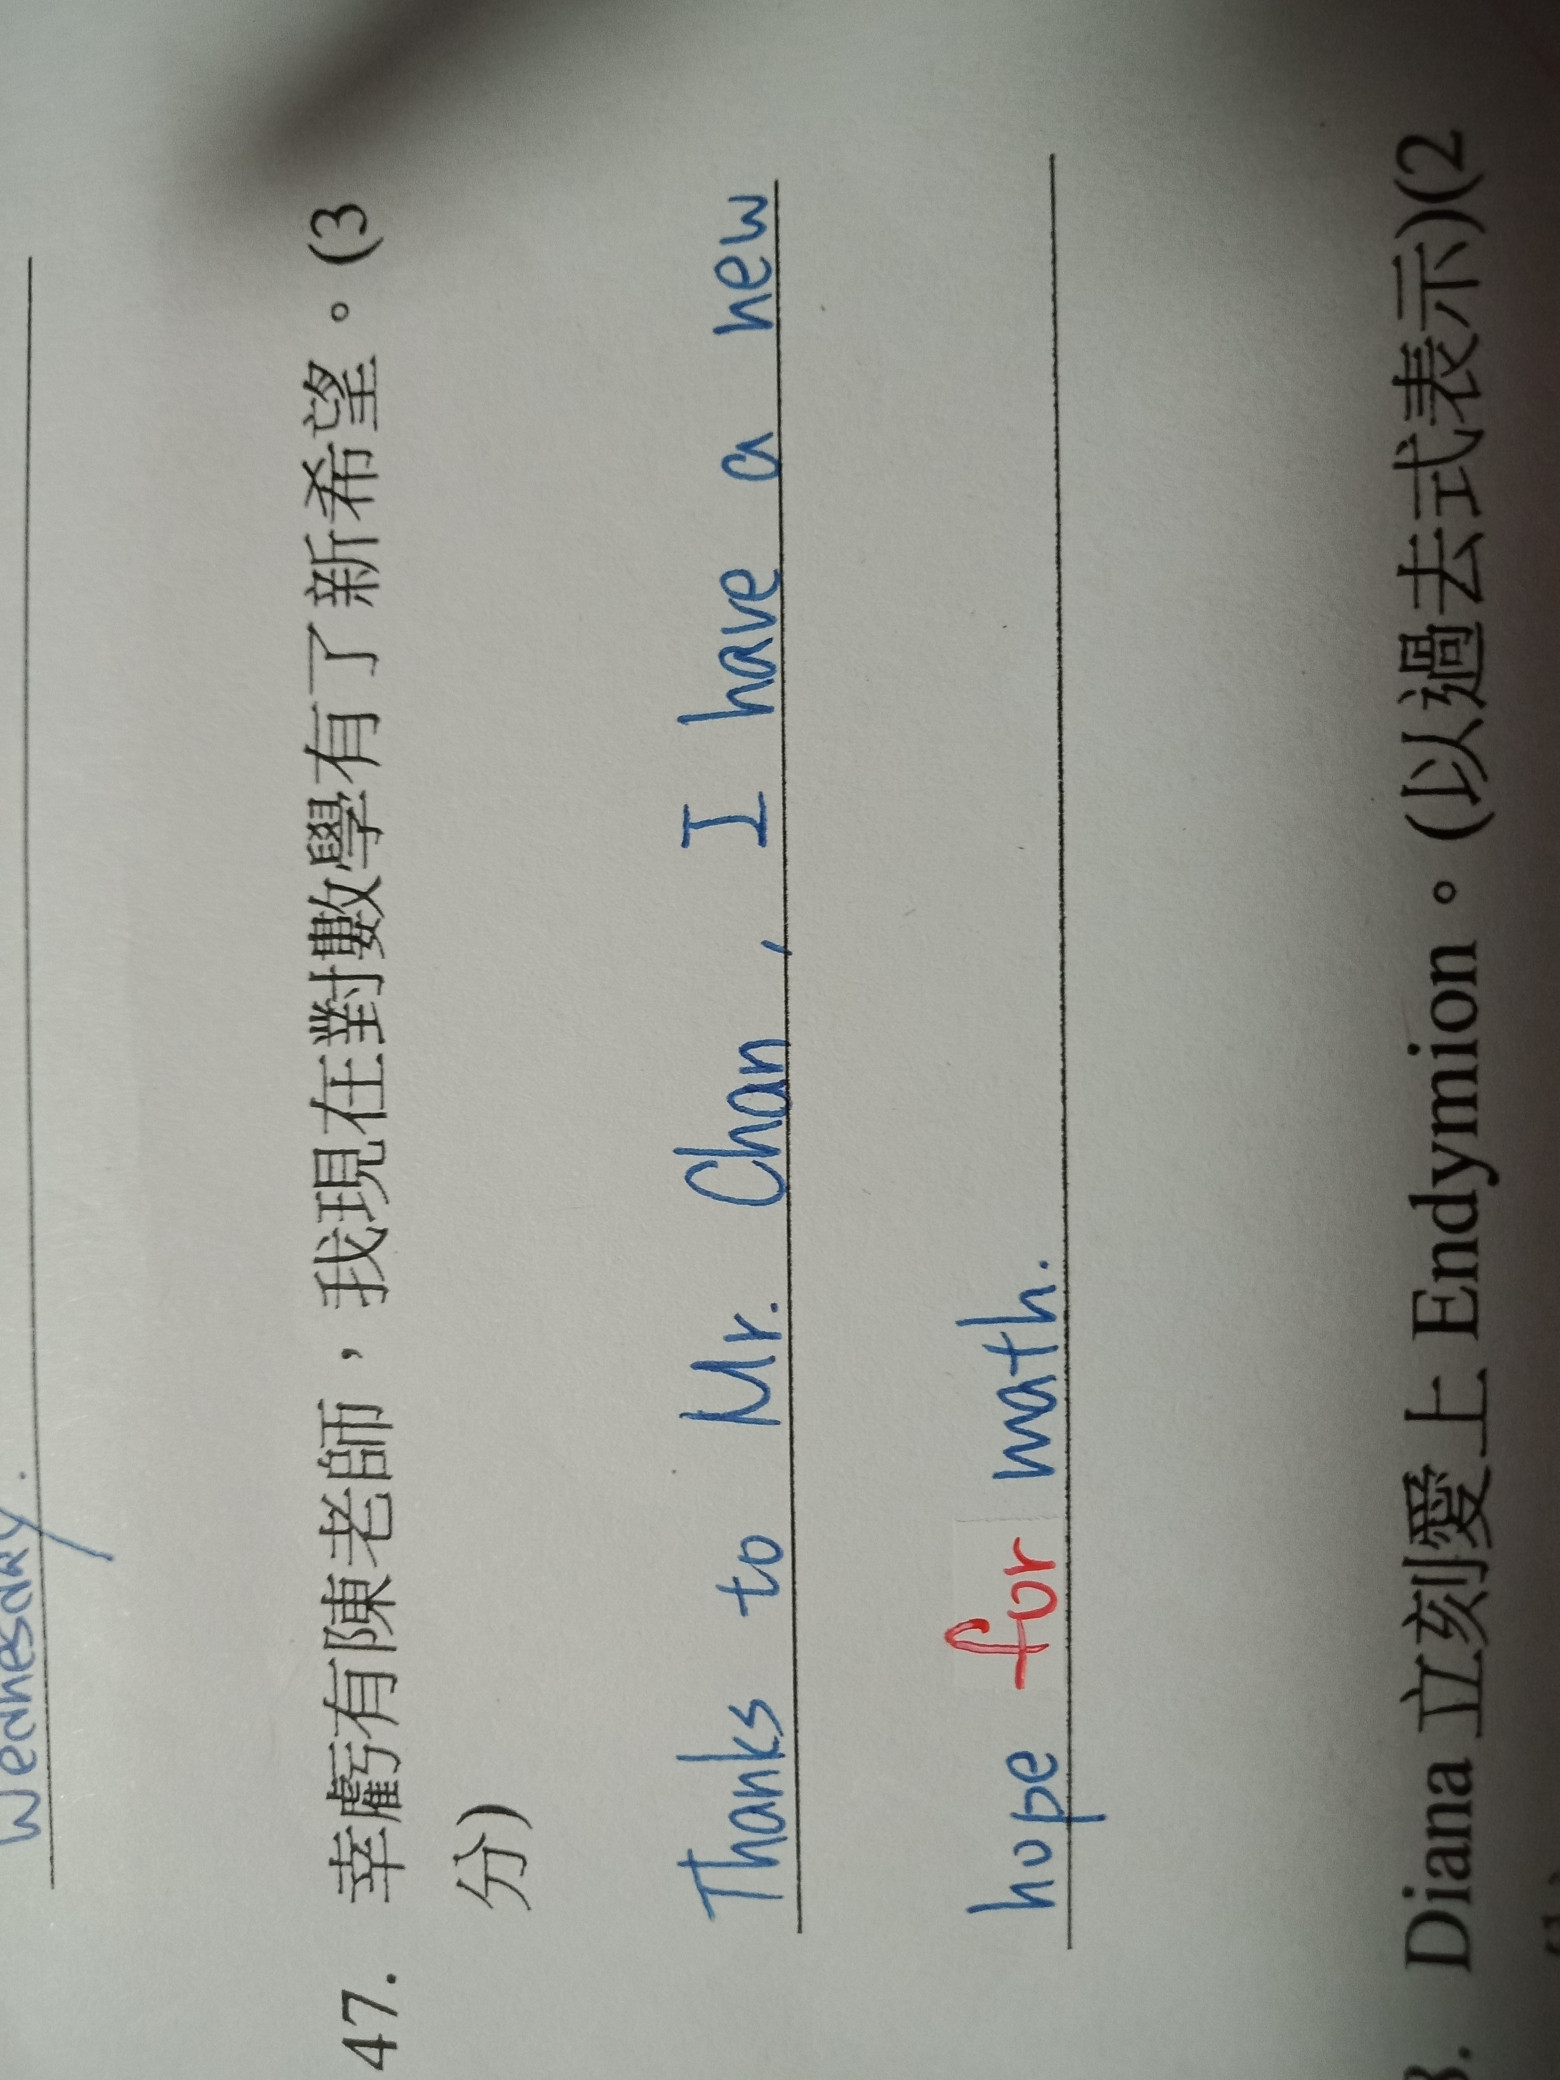 Wednesday.
47. 幸虧有陳老師，我現在對數學有了新希望。(3
分)
Thanks to Mr. Chan, I have a new
hope for math.
Diana 立刻愛上 Endymion。(以過去式表示)(2